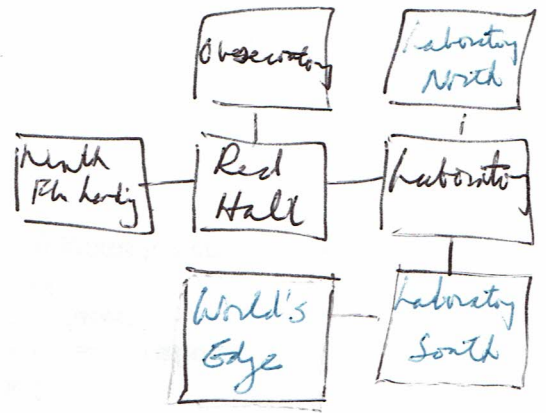 Observatory
Laboratory
North
Ninth
Flr Landing
Red
Hall
Laboratory
World's
Edge
Laboratory
South